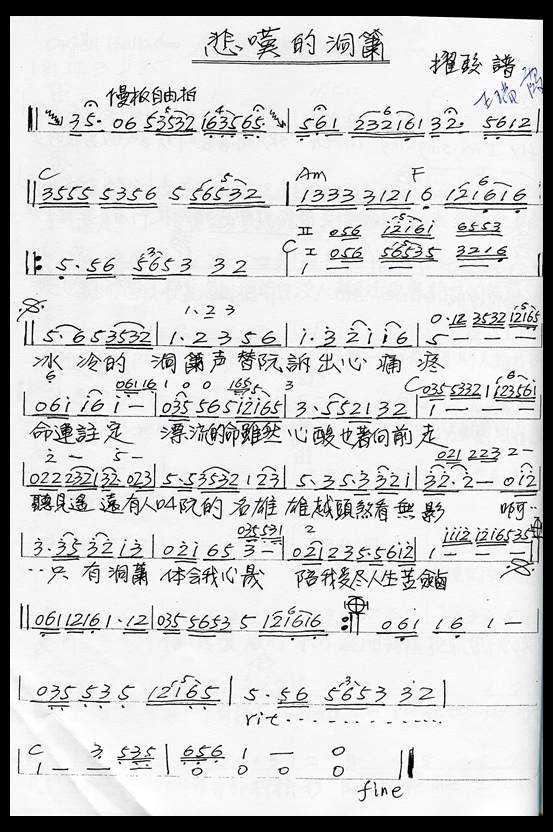 悲嘆的洞簫
擢發 譜
慢板自由拍
35. 06 53532 163565 | 561 232161 32. 5612
C Am F
3555 5356 5 56532 | 1333 3121 6 121616
II 056 12161 6553
C I 056 56535 3216
5.56 5653 32 | 1 — — —
1.23 0.12 3532 12165
5.653532 1.2356 1.32116 5 — — —
冰冷的 洞簫声替阮訴出心痛疼
06161 100 1655 3 C 0355332 1 123561
061 161 1— | 035 565 12165 | 3.552132 | 1 — — —
命運註定 漂流的命雖然心酸也著向前走
2— 5— 021 223 2—
022232132.023 | 5.53532 123 | 5.35.3321 | 32.2— 012
聽見遠遠有人叫阮的名 雄雄越頭煞看無影 啊‥
035531 2 1112 1216535
3.35 32 12 | 021 65 3— | 021235.5612 | 1 — — —
‥只有洞簫 体会我心晟 陪我受尽人生苦鹹
06112161 1.12 | 035 5653 5 121616 061 16 1—
035 535 12165 | 5.56 5653 32
rit‥‥‥‥
C 3. 535 | 656 1 — 0
1 — — — 0 0 0 0
fine